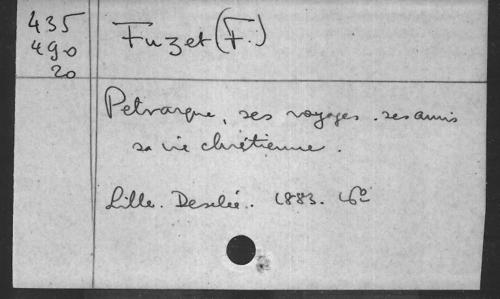 435
490
20
Fuzet (F.)
Petrarque, ses voyages. ses amis
sa vie chrétienne.
Lille. Desclée. 1883. 16º